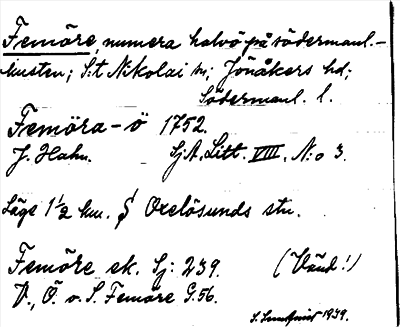 Femöre, numera halvö på södermanl.-
kusten; S:t Nikolai sn; Jönåkers hd;
Södermanl. l.
Femöra-ö 1752.
J. Hahn. Sj.A. Litt. VIII. N:o 3.
Läge 1 1/2 km. S Oxelösunds stn.
Femöre ek. Sj: 239. (Vänd!)
V., Ö. o. S. Femöre G.56.
1939.